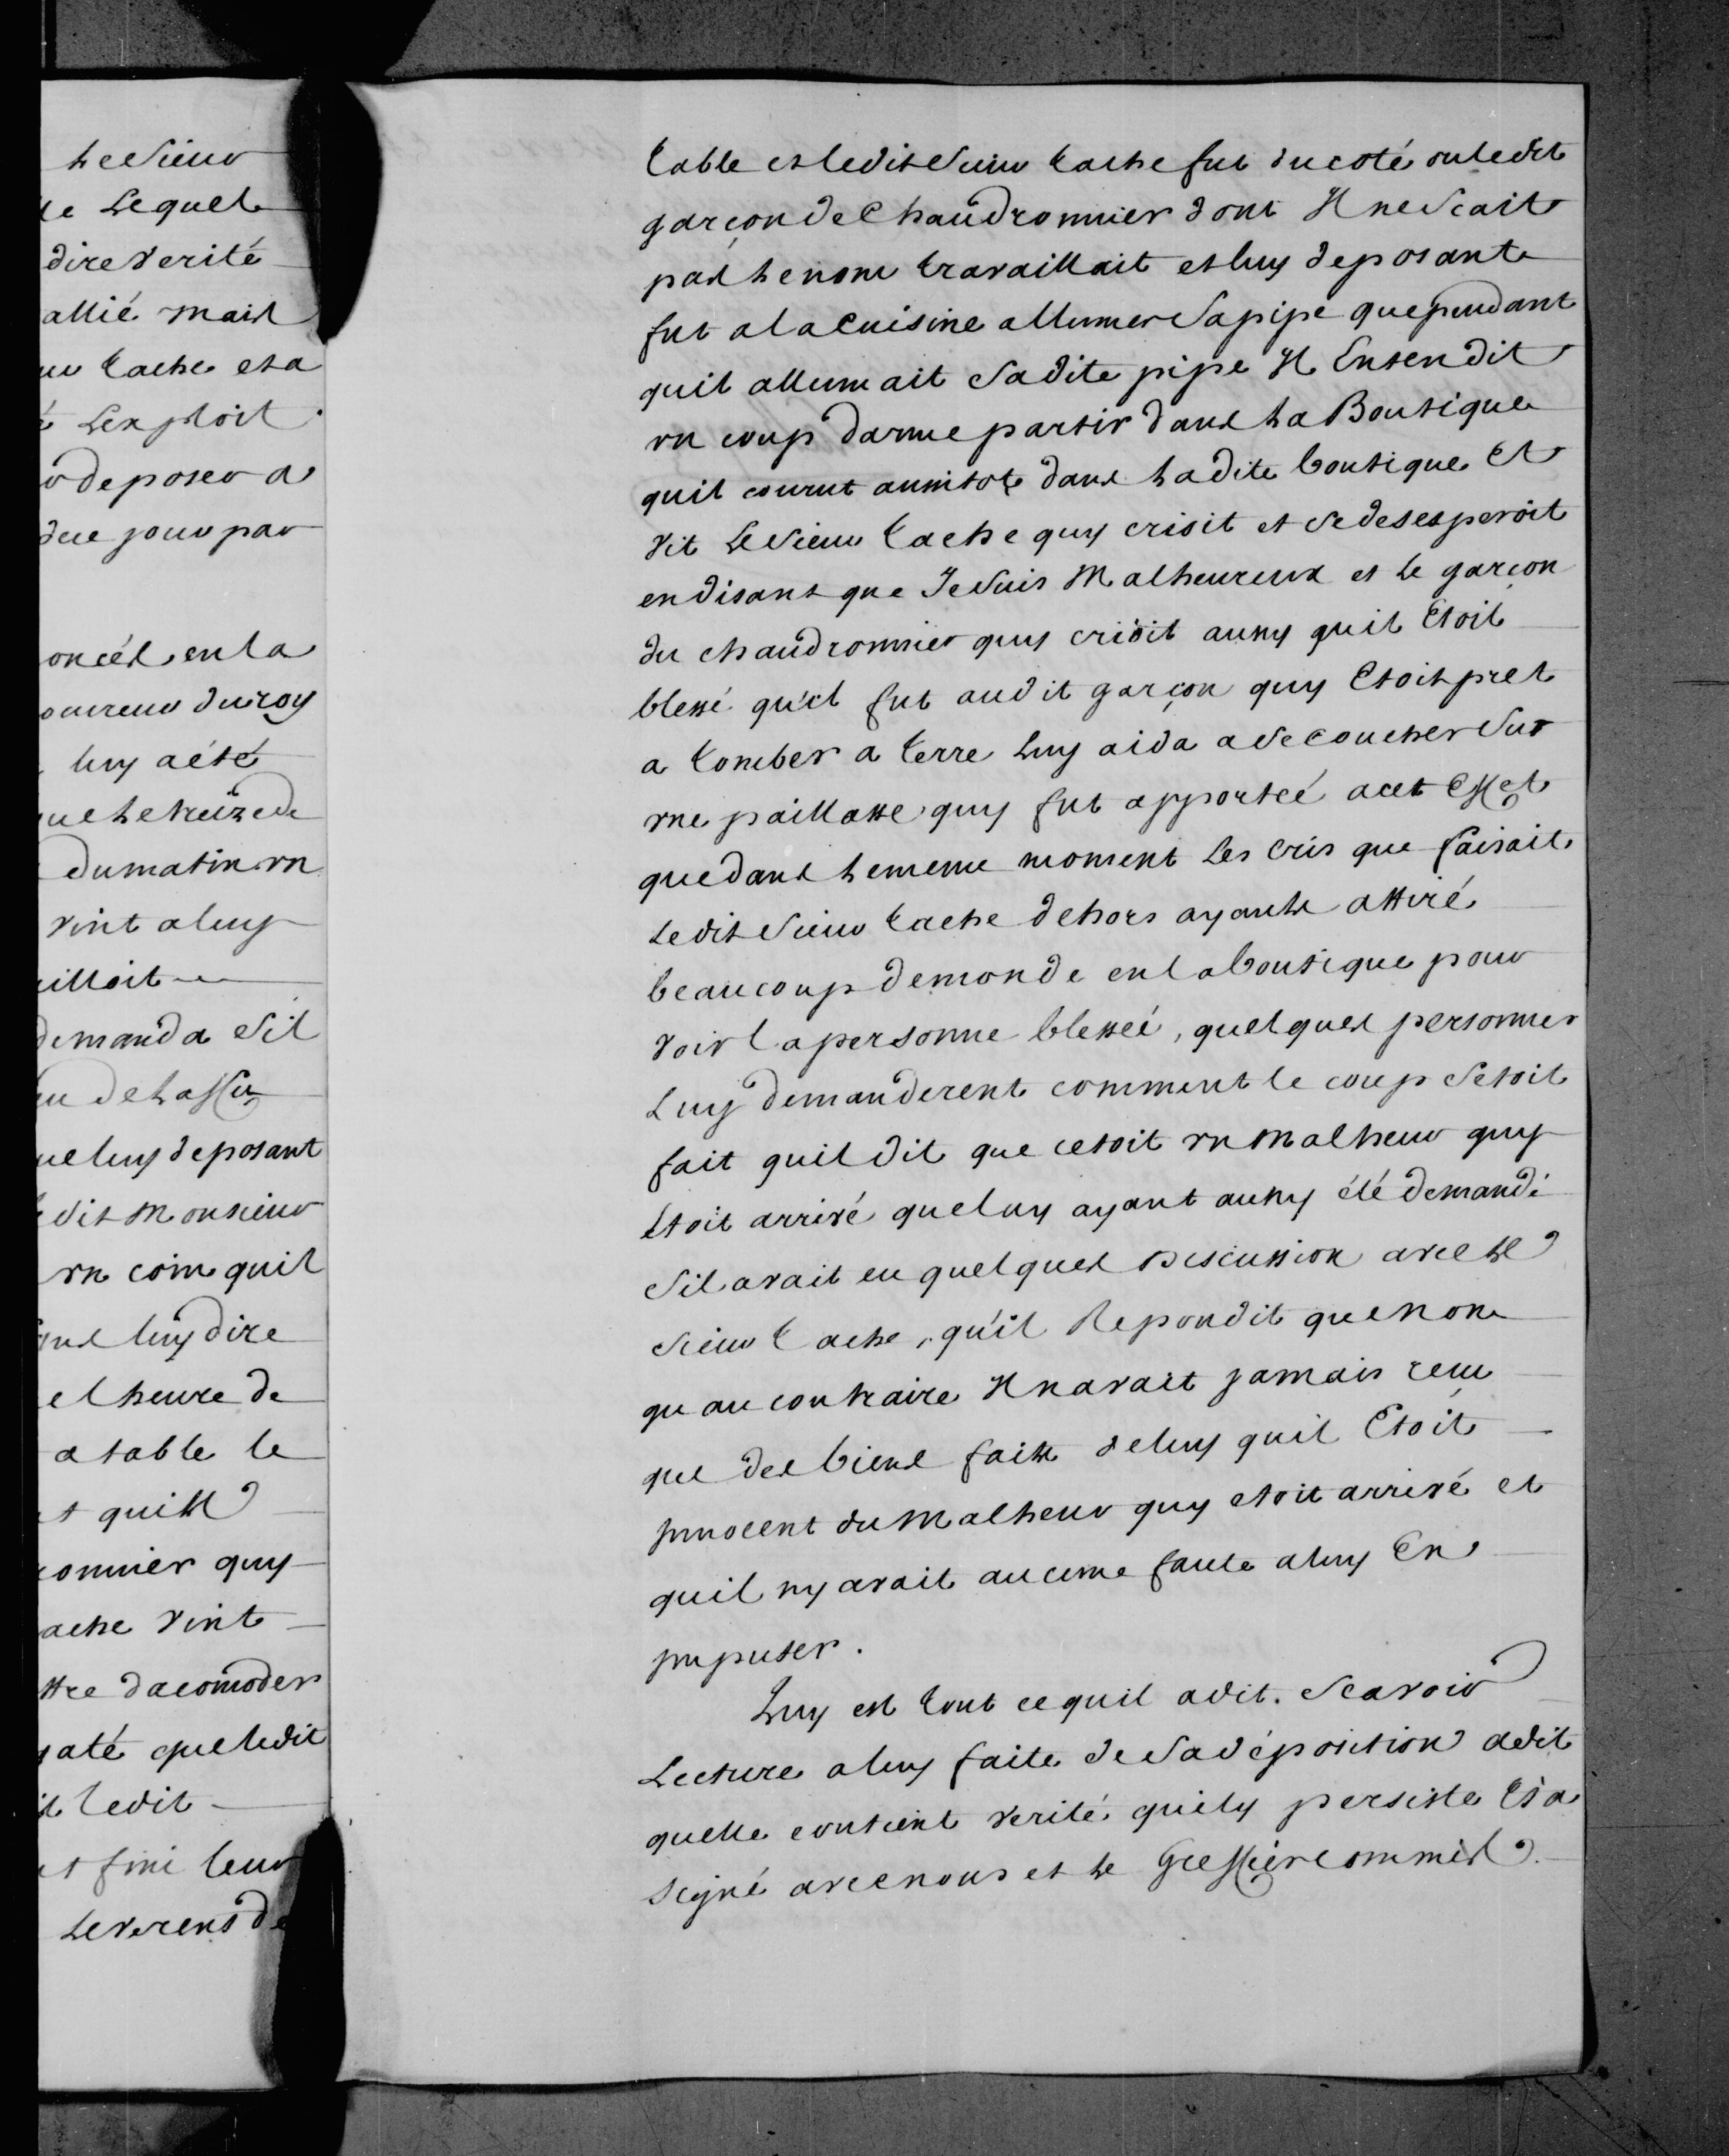 le Sieur
le Lequel
dire verité
allié mais
ur tache et a
é Lexploit
r deposer a
due jour par
oncés en la
ocureur du roy
luy a été
que le treize de
du matin un
vint a luy
illoit
demanda Sil
que luy deposant
dit Monsieur
un coin quil
luy dire
el heure de
a table le
et quil
ronnier quy
ache vint
ttre dacomoder
gaté que ledit
ledit
et fini leur
Leverent de
table et ledit Sieur tache fut du coté ou ledit
garçon de Chaudronnier dont Il ne Scait
pas le nom travaillait et luy deposant
fut a la Cuisine allumer Sa pipe que pendant
quil allumait Sadite pipe Il Entendit
un coup darme partir dans la Boutique
quil courut aussitot dans ladite boutique Et
vit Le Sieur tache quy crioit et Se desesperoit
en disant que Je Suis Malheureux et le garçon
du chaudronnier quy crioit aussy quil Etoit
blessé qu'il fut audit garçon quy Etoit pret
a tomber a terre Luy aida a Se coucher Sur
une paillasse quy fut apportéé a cet Effet
que dans le meme moment Les Cris que faisait
Ledit Sieur tache dehors ayant attiré
beaucoup de monde en la boutique pour
voir la personne blesséé, quelques personnes
Luy demanderent comment le coup Setoit
fait quil dit que cetoit un Malheur quy
Etoit arrivé que luy ayant aussy été demandé
Sil avait eu quelques Discussion avec le
Sieur tache, qu'il Repondit que non
qu au contraire Il navait jamais reçu
que des biens faits de luy quil Etoit
jnnocent du Malheur quy etoit arrivé et
quil ny avait aucune faute a luy En
jmputer.
Quy est tout ce quil a dit. Scavoir
Lecture a luy faite de Sa déposition a dit
quelle contient verité quily persiste Et a
Signé avec nous et le Greffier commis